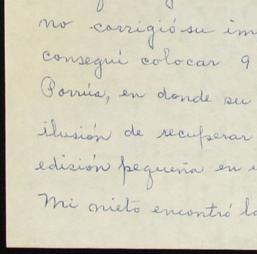 no corrigió su im
conseguí colocar 9
Porrúa, en donde su
ilusión de recuperar
edisión pequeña en
Mi nieto encontró la